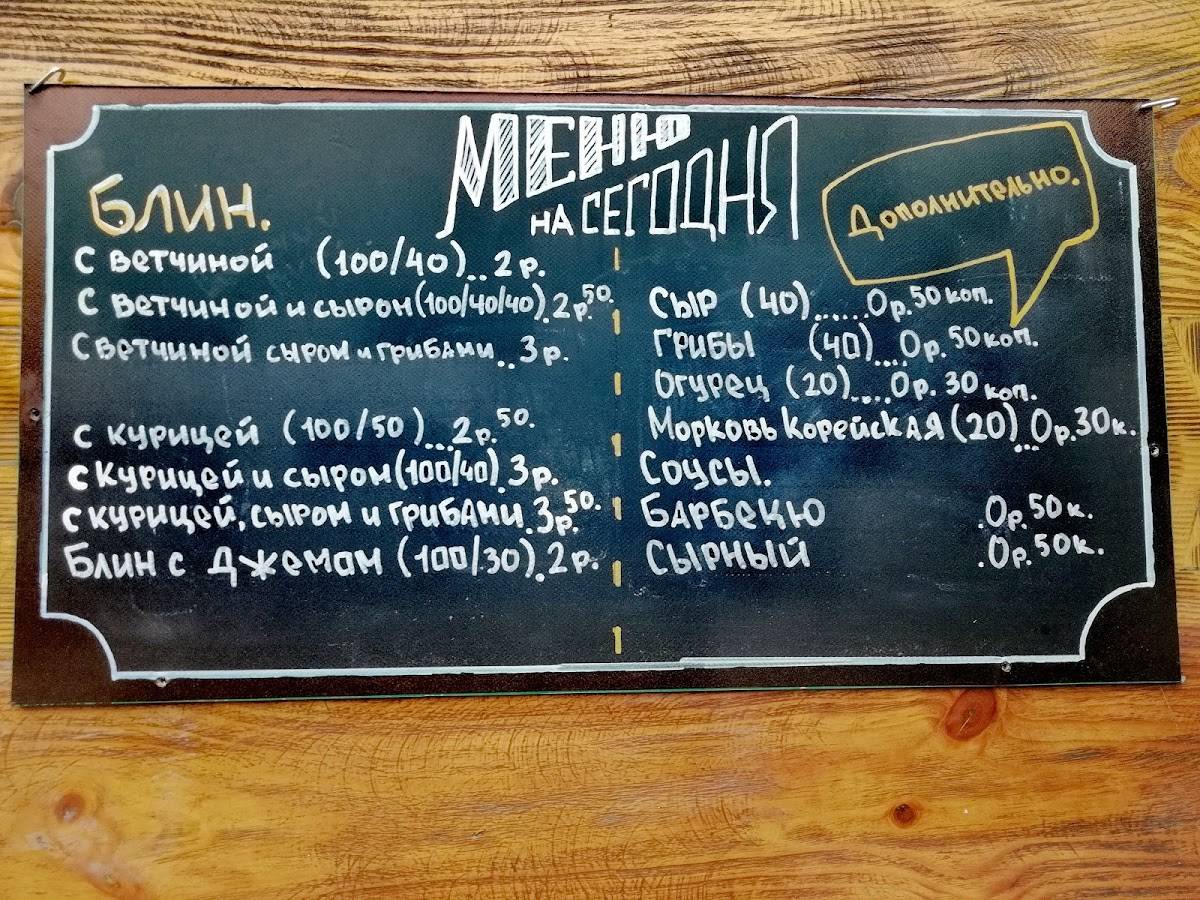 МЕНЮ
НА СЕГОДНЯ
БЛИН.
С ВЕТЧИНОЙ (100/40)..2р.
С ВЕТЧИНОЙ И СЫРОМ (100/40/40).2р.50.
С ВЕТЧИНОЙ СЫРОМ И ГРИБАМИ..3р.
С КУРИЦЕЙ (100/50)...2р.50.
С КУРИЦЕЙ И СЫРОМ (100/40).3р.
С КУРИЦЕЙ, СЫРОМ И ГРИБАМИ.3р.50.
БЛИН С ДЖЕМАМ (100/30)..2р.
Дополнительно.
СЫР (40)......0р.50 коп.
ГРИБЫ (40)....0р.50 коп.
ОГУРЕЦ (20)....0р.30 коп.
МОРКОВЬ КОРЕЙСКАЯ (20)...0р.30к.
СОУСЫ.
БАРБЕКЮ .0р.50к.
СЫРНЫЙ .0р.50к.